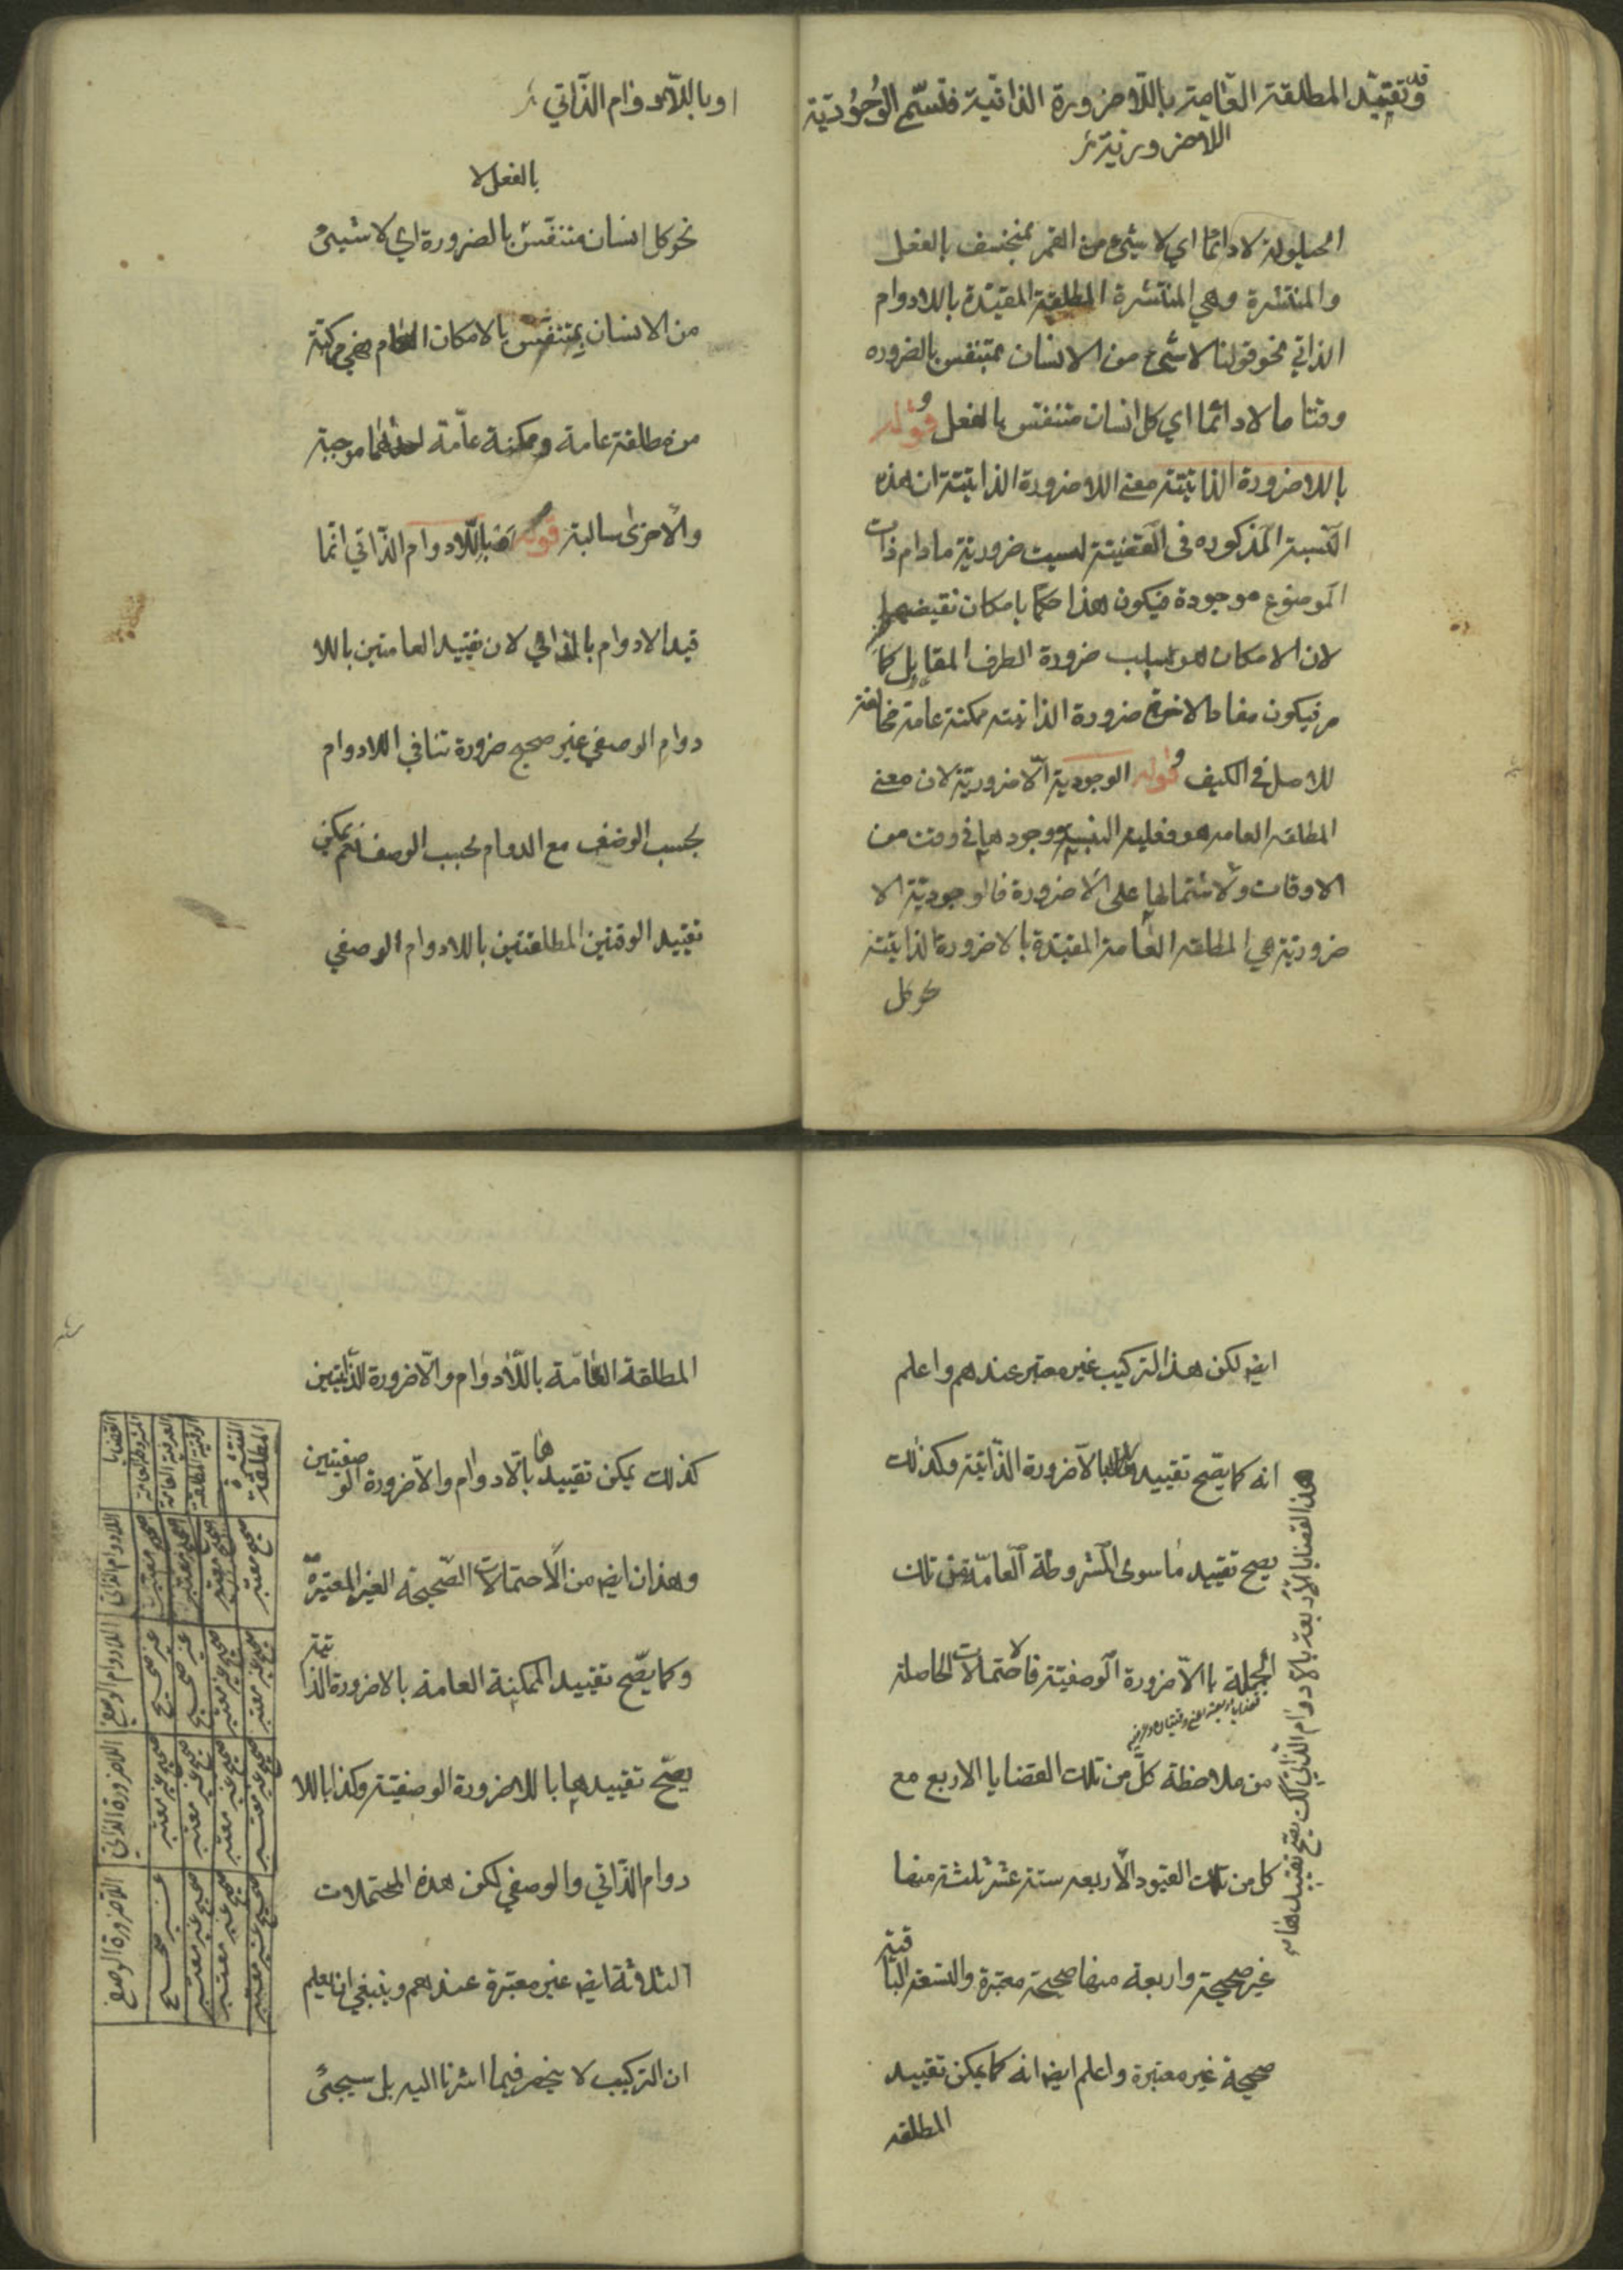 وقد تقيد المطلقة العامة باللا ضرورة الذاتية فتسمى الوجودية
اللاضرورية
الحيلولة لا دائما اي لا شيء من القمر بمنخسف بالفعل
والمنتشرة وهي المنتشرة المطلقة المقيدة باللادوام
الذاتي نحو قولنا لا شيء من الانسان بمتنفس بالضروره
وقتا ما لا دائما اي كل انسان متنفس بالفعل قوله
باللاضرورة الذاتية معنى اللاضرورة الذاتية ان هذه
النسبة المذكوره فى القضية ليست ضرورية ما دام ذات
الموضوع موجودة فيكون هذا حكما بامكان نقيضها
لان الامكان هو سلب ضرورة الطرف المقابل كما
مر فيكون مفاد اللاضرورة الذاتيته ممكنة عامة مخالفة
للاصل في الكيف قوله الوجودية اللاضرورية لان معنى
المطلقه العامه هو فعلية النسبة ووجودها في وقت من
الاوقات ولاشتمالها على اللاضرورة فالوجودية اللا
ضرورية هي المطلقه العامة المقيدة باللاضرورة الذاتية
نحو كل
او باللادوام الذاتي
بالفعل لا
نحو كل انسان متنفس بالضرورة اي لا شيئ
من الانسان بمتنفس بالامكان العام فهي مركبة
من مطلقة عامة وممكنة عامة احدهما موجبة
والاخرى سالبة قوله باللادوام الذاتي انما
قيد الادوام بالذاتي لان تقييد العامتين باللا
دوام الوصفي غير صحيح ضرورة تنافي اللادوام
بحسب الوصف مع الدوام بحسب الوصف نعم يمكن
تقييد الوقتين المطلقتين باللادوام الوصفي
ايضا لكن هذا التركيب غير معتبر عندهم واعلم
انه كما يصح تقييد باللاضرورة الذاتية وكذلك
يصح تقييد ما سوى المشروطة العامة من تلك
الجملة باللاضرورة الوصفية فالاحتمالات الحاصلة
من ملاحظة كل من تلك القضايا الاربع مع
كل من تلك القيود الاربعه ستة عشر ثلثة منها
غير صحيحة واربعة منها صحيحة معتبرة والتسعة الباقية
صحيحة غير معتبرة واعلم ايضا انه كما يمكن تقييد
المطلقه
هذا القضايا الاربعة بالادوام الذاتي كك يصح تقييدها
المطلقة العامة باللادوام واللاضرورة الذاتيتين
كذلك يمكن تقييدها باللادوام واللاضرورة الوصفيتين
وهذان ايضا من الاحتمالات الصحيحة الغير المعتبرة
وكما يصح تقييد الممكنة العامة باللاضرورة الذاتية
يصح تقييدها باللاضرورة الوصفية وكذا باللا
دوام الذاتي والوصفي لكن هذه المحتملات
الثلاثة ايضا غير معتبرة عندهم وينبغي ان يعلم
ان التركيب لا ينحصر فيما اشرنا اليه بل سيجئ
القضايا
المشروطة العامة
العرفية العامة
الوقتية المطلقة
المنتشرة
المطلقة
اللادوام الذاتي
صحيح معتبر
صحيح معتبر
صحيح معتبر
صحيح معتبر
اللادوام الوصفي
غير صحيح
غير صحيح
صحيح غير معتبر
صحيح غير معتبر
اللاضرورة الذاتي
صحيح غير معتبر
صحيح غير معتبر
صحيح غير معتبر
صحيح غير معتبر
اللاضرورة الوصفي
غير صحيح
صحيح غير معتبر
صحيح غير معتبر
صحيح غير معتبر